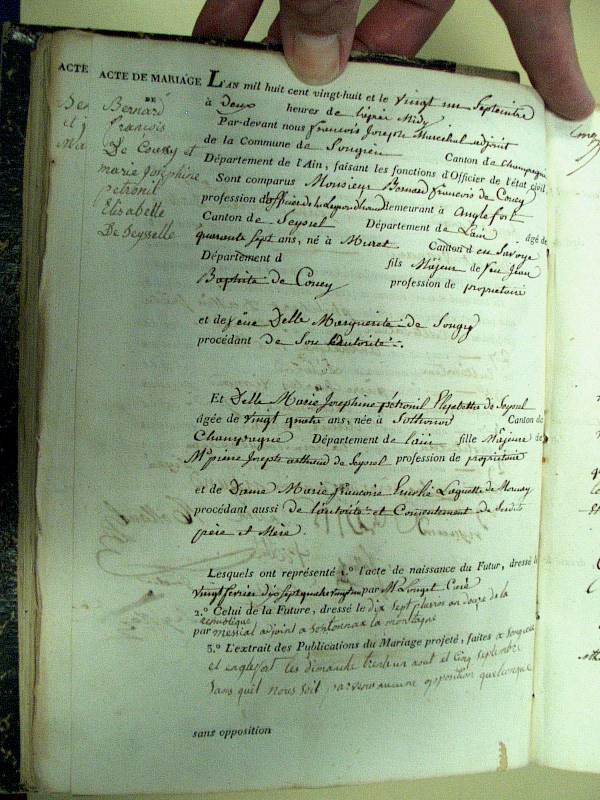 ACTE
ACTE DE MARIAGE
DE
Bernard
francois
De Coucy et
marie Joséphine
pétronil
Elisabette
De Seysselle
L'AN mil huit cent vingt-huit et le vingt un Septembre
à deux heures de l'après Midy
Par-devant nous francois Joseph Marechal adjoint
de la Commune de Songieu Canton de Champagne
Département de l'Ain, faisant les fonctions d'Officier de l'état civil,
Sont comparus Monsieur Bernard francois de Coucy
profession d'officier demeurant à anglefort
Canton de Seyssel Département de Lain âgé de
quarante Sept ans, né à Muret Canton d en Savoye
Département d fils Majeur de feu Jean
Baptiste de Coucy profession de proprietaire
et de feue Delle Marguerite de Songy
procédant de Son autorité.
Et Delle Marie Josephine pétronil Elizabettes de Seyssel
âgée de vingt quatre ans, née à Sothonod Canton de
Champagne Département de lain fille Majeure de
Mr pierre Joseph de Seyssel profession de proprietaire
et de Dame Marie francoise de Mornay
procédant aussi de l'autorité et Consentement de Sesdits
père et Mère
Lesquels ont représenté 1.º l'acte de naissance du Futur, dressé le
vingt fevrier dix sept quatre vingt un par Mr Curé
2.º Celui de la Future, dressé le dix sept pluvios an douze de la
republique
par messial adjoint a Sothonnax la montagne
3.º L'extrait des Publications du Mariage projeté, faites a Songieu
et anglefort les dimanche trente un aout et Cinq Septembre
Sans qu'il nous Soit parvenu aucune opposition quelconque
sans opposition